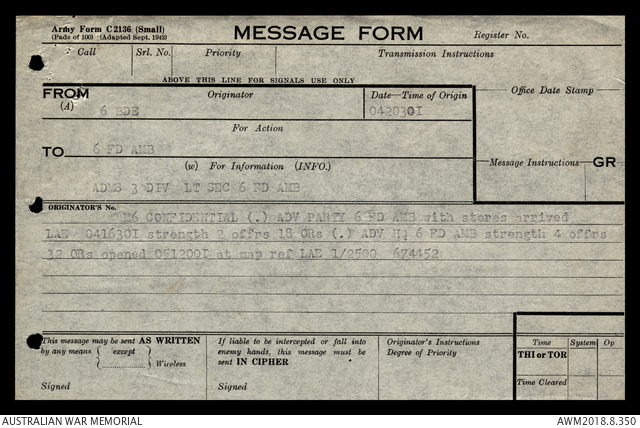 Army Form C2136 (Small)
(Pads of 100) (Adapted Sept. 1943)
MESSAGE FORM
Register No.
Call Srl. No. Priority Transmission Instructions
ABOVE THIS LINE FOR SIGNALS USE ONLY
FROM Originator Date—Time of Origin Office Date Stamp
(A) 6 BDE 042030I
For Action
TO 6 FD AMB
(w) For Information (INFO.) Message Instructions GR
ADMS 3 DIV LT SEC 6 FD AMB
ORIGINATOR'S No.
M6 CONFIDENTIAL (.) ADV PARTY 6 FD AMB with stores arrived
LAE 041630I strength 2 offrs 18 ORs (.) ADV H 6 FD AMB strength 4 offrs
32 ORs opened 051200I at map ref LAE 1/2500 674452
This message may be sent AS WRITTEN
by any means { except
Wireless
Signed
If liable to be intercepted or fall into
enemy hands, this message must be
sent IN CIPHER
Signed
Originator's Instructions
Degree of Priority
Time System Op
THI or TOR
Time Cleared
AUSTRALIAN WAR MEMORIAL AWM2018.8.350